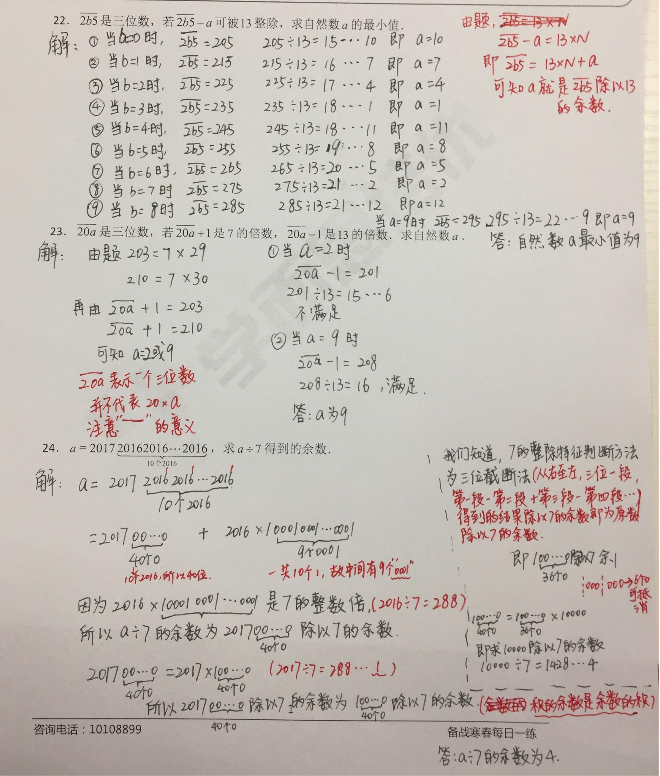 22. 2b5是三位数，若2b5-a可被13整除，求自然数a的最小值.
解：① 当b=0时， 2b5=205 205÷13=15…10 即 a=10
② 当b=1时， 2b5=215 215÷13=16…7 即 a=7
③ 当b=2时， 2b5=225 225÷13=17…4 即 a=4
④ 当b=3时， 2b5=235 235÷13=18…1 即 a=1
⑤ 当b=4时， 2b5=245 245÷13=18…11 即 a=11
⑥ 当b=5时， 2b5=255 255÷13=19…8 即 a=8
⑦ 当b=6时， 2b5=265 265÷13=20…5 即 a=5
⑧ 当b=7时 2b5=275 275÷13=21…2 即 a=2
⑨ 当b=8时 2b5=285 285÷13=21…12 即 a=12
当a=9时 2b5=295, 295÷13=22…9 即a=9
答：自然数a最小值为9
由题， 2b5=13×N
2b5-a=13×N
即 2b5=13×N+a
可知a就是2b5除以13
的余数.
23. 20a是三位数，若20a+1是7的倍数，20a-1是13的倍数. 求自然数a.
解： 由题 203=7×29
210=7×30
再由 20a+1=203
20a+1=210
可知 a=2或9
20a表示一个三位数
并不代表20×a
注意"—"的意义
① 当a=2时
20a-1=201
201÷13=15…6
不满足
② 当a=9时
20a-1=208
208÷13=16，满足.
答：a为9
24. a=2017 20162016…2016，求a÷7得到的余数.
10个2016
解： a=2017 2016 2016…2016
10个2016
=2017 00…0 + 2016×100010001…0001
40个0 9个0001
10个2016，所以40位. 一共10个1，故中间有9个"0001"
因为2016×10001 0001…0001是7的整数倍，(2016÷7=288)
所以a÷7的余数为2017 00…0除以7的余数.
40个0
2017 00…0=2017×100…0 (2017÷7=288…1)
40个0 40个0
所以2017 00…0除以7的余数为100…0除以7的余数(积的余数是余数的积)
40个0 40个0
我们知道，7的整除特征判断方法
为三位截断法(从右至左，三位一段，
第一段-第二段+第三段-第四段…)
得到的结果除以7的余数即为原数
除以7的余数.
即100…0除以7余1
36个0
000 000→6个0
可抵
消
100…0=100…0×10000
40个0 36个0
即求10000除以7的余数
10000÷7=1428…4
咨询电话：10108899 备战寒春每日一练
答：a÷7的余数为4.